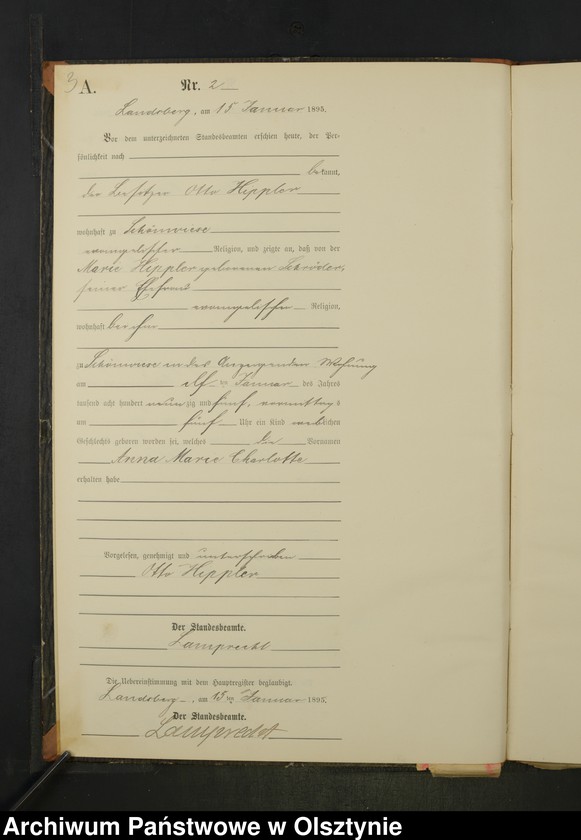 3 A. Nr. 2
Landsberg, am 15 Januar 1895.
Vor dem unterzeichneten Standesbeamten erschien heute, der Per-
sönlichkeit nach
bekannt,
der Besitzer Otto Hippler
wohnhaft zu Schönwiese
evangelischer Religion, und zeigte an, daß von der
Marie Hippler geborenen Schröder,
seiner Ehefrau
evangelischer Religion,
wohnhaft bei ihm
zu Schönwiese in des Anzeigenden Wohnung
am elf ten Januar des Jahres
tausend acht hundert neunzig und fünf, vormittags
um fünf Uhr ein Kind weiblichen
Geschlechts geboren worden sei, welches die Vornamen
Anna Marie Charlotte
erhalten habe
Vorgelesen, genehmigt und unterschrieben
Otto Hippler
Der Standesbeamte.
Lamprecht
Die Uebereinstimmung mit dem Hauptregister beglaubigt.
Landsberg, am 15 ten Januar 1895.
Der Standesbeamte.
Lamprecht
Archiwum Państwowe w Olsztynie